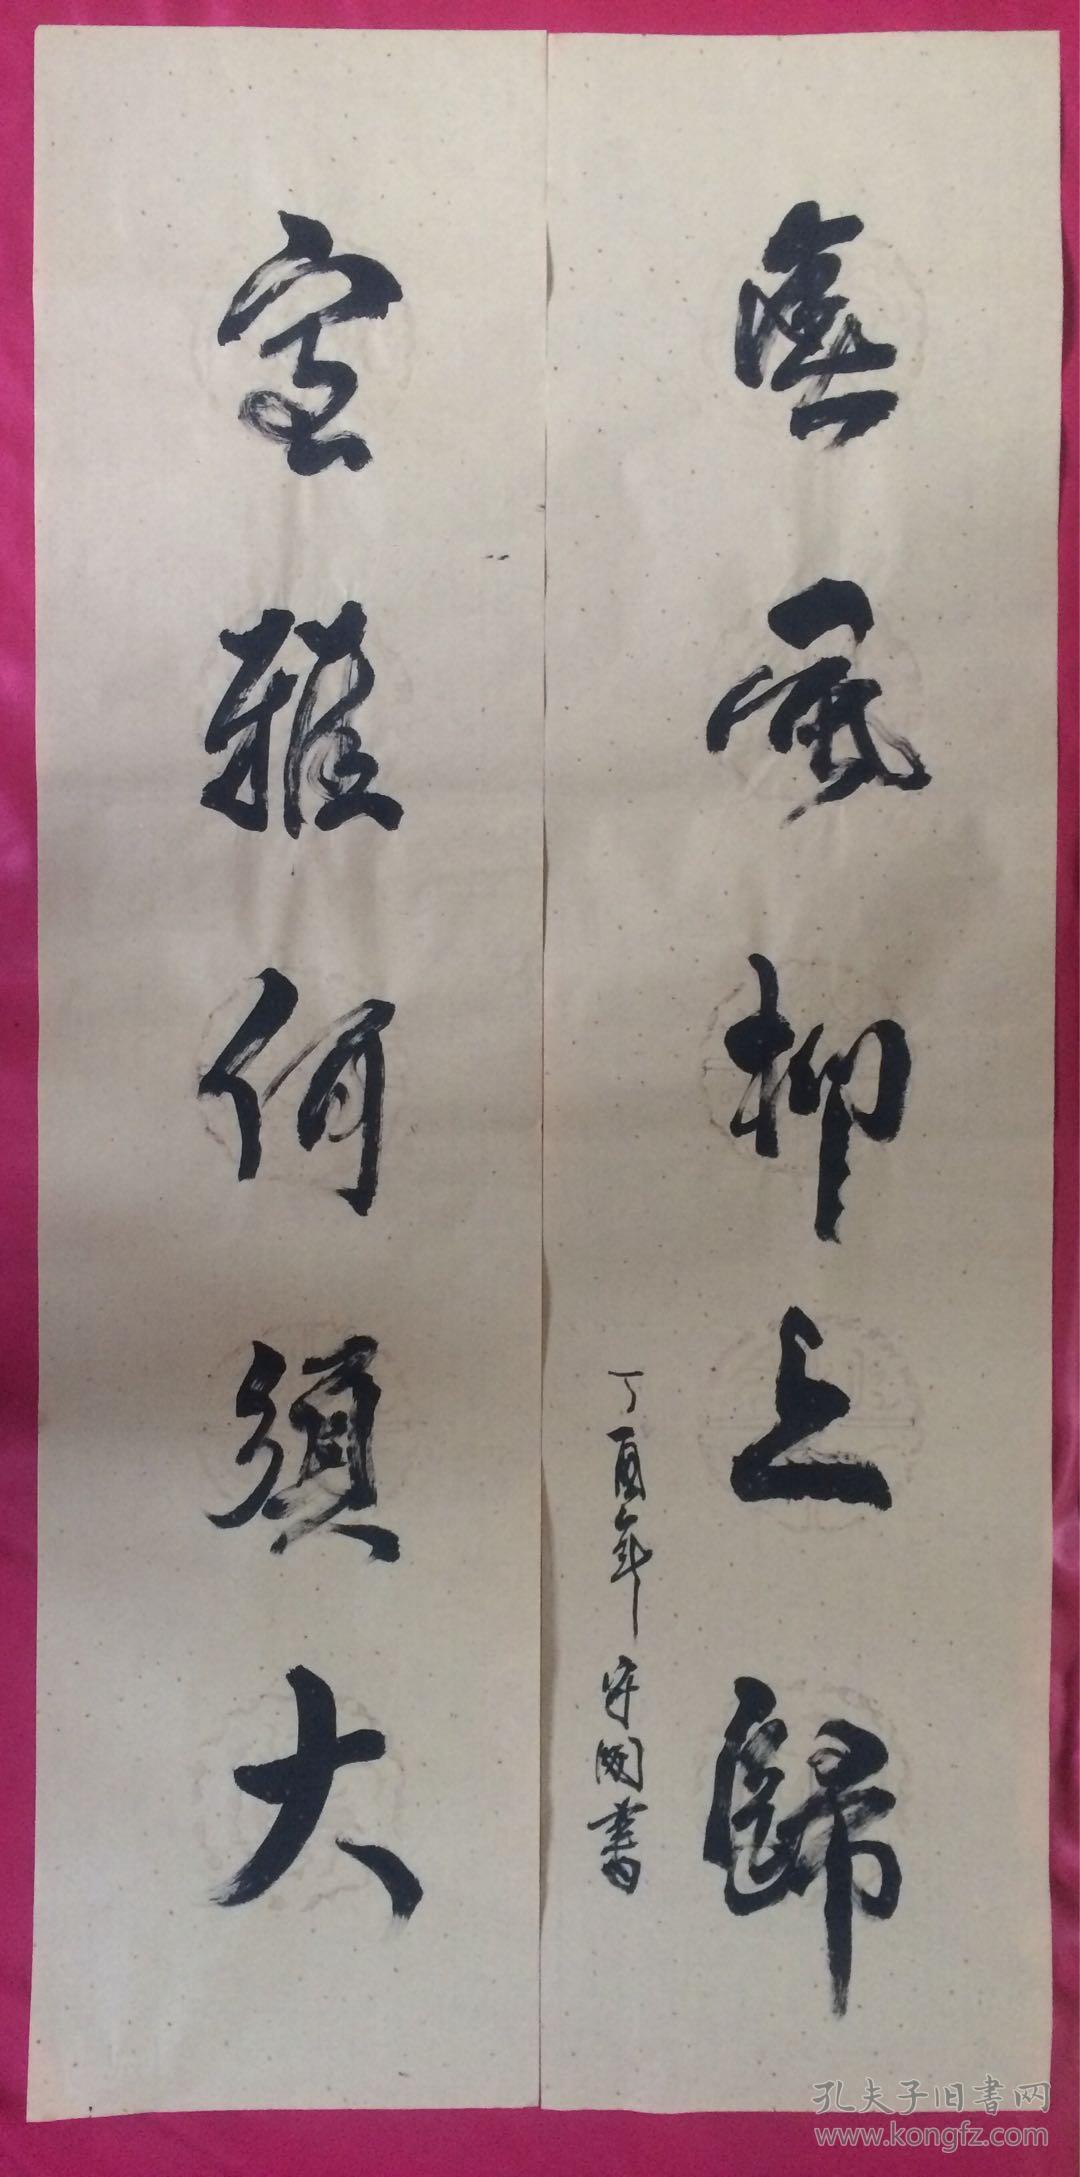 春風柳上歸
丁酉年 守國書
室雅何須大
孔夫子旧书网
www.kongfz.com